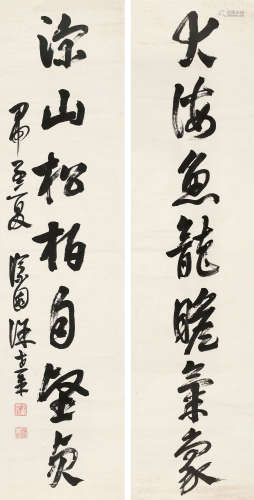 大海魚龍瞻氣象
深山松柏自堅貞